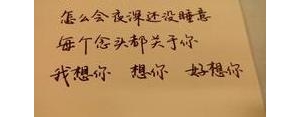 怎么会夜深还没睡意
每个念头都关于你
我想你 想你 好想你